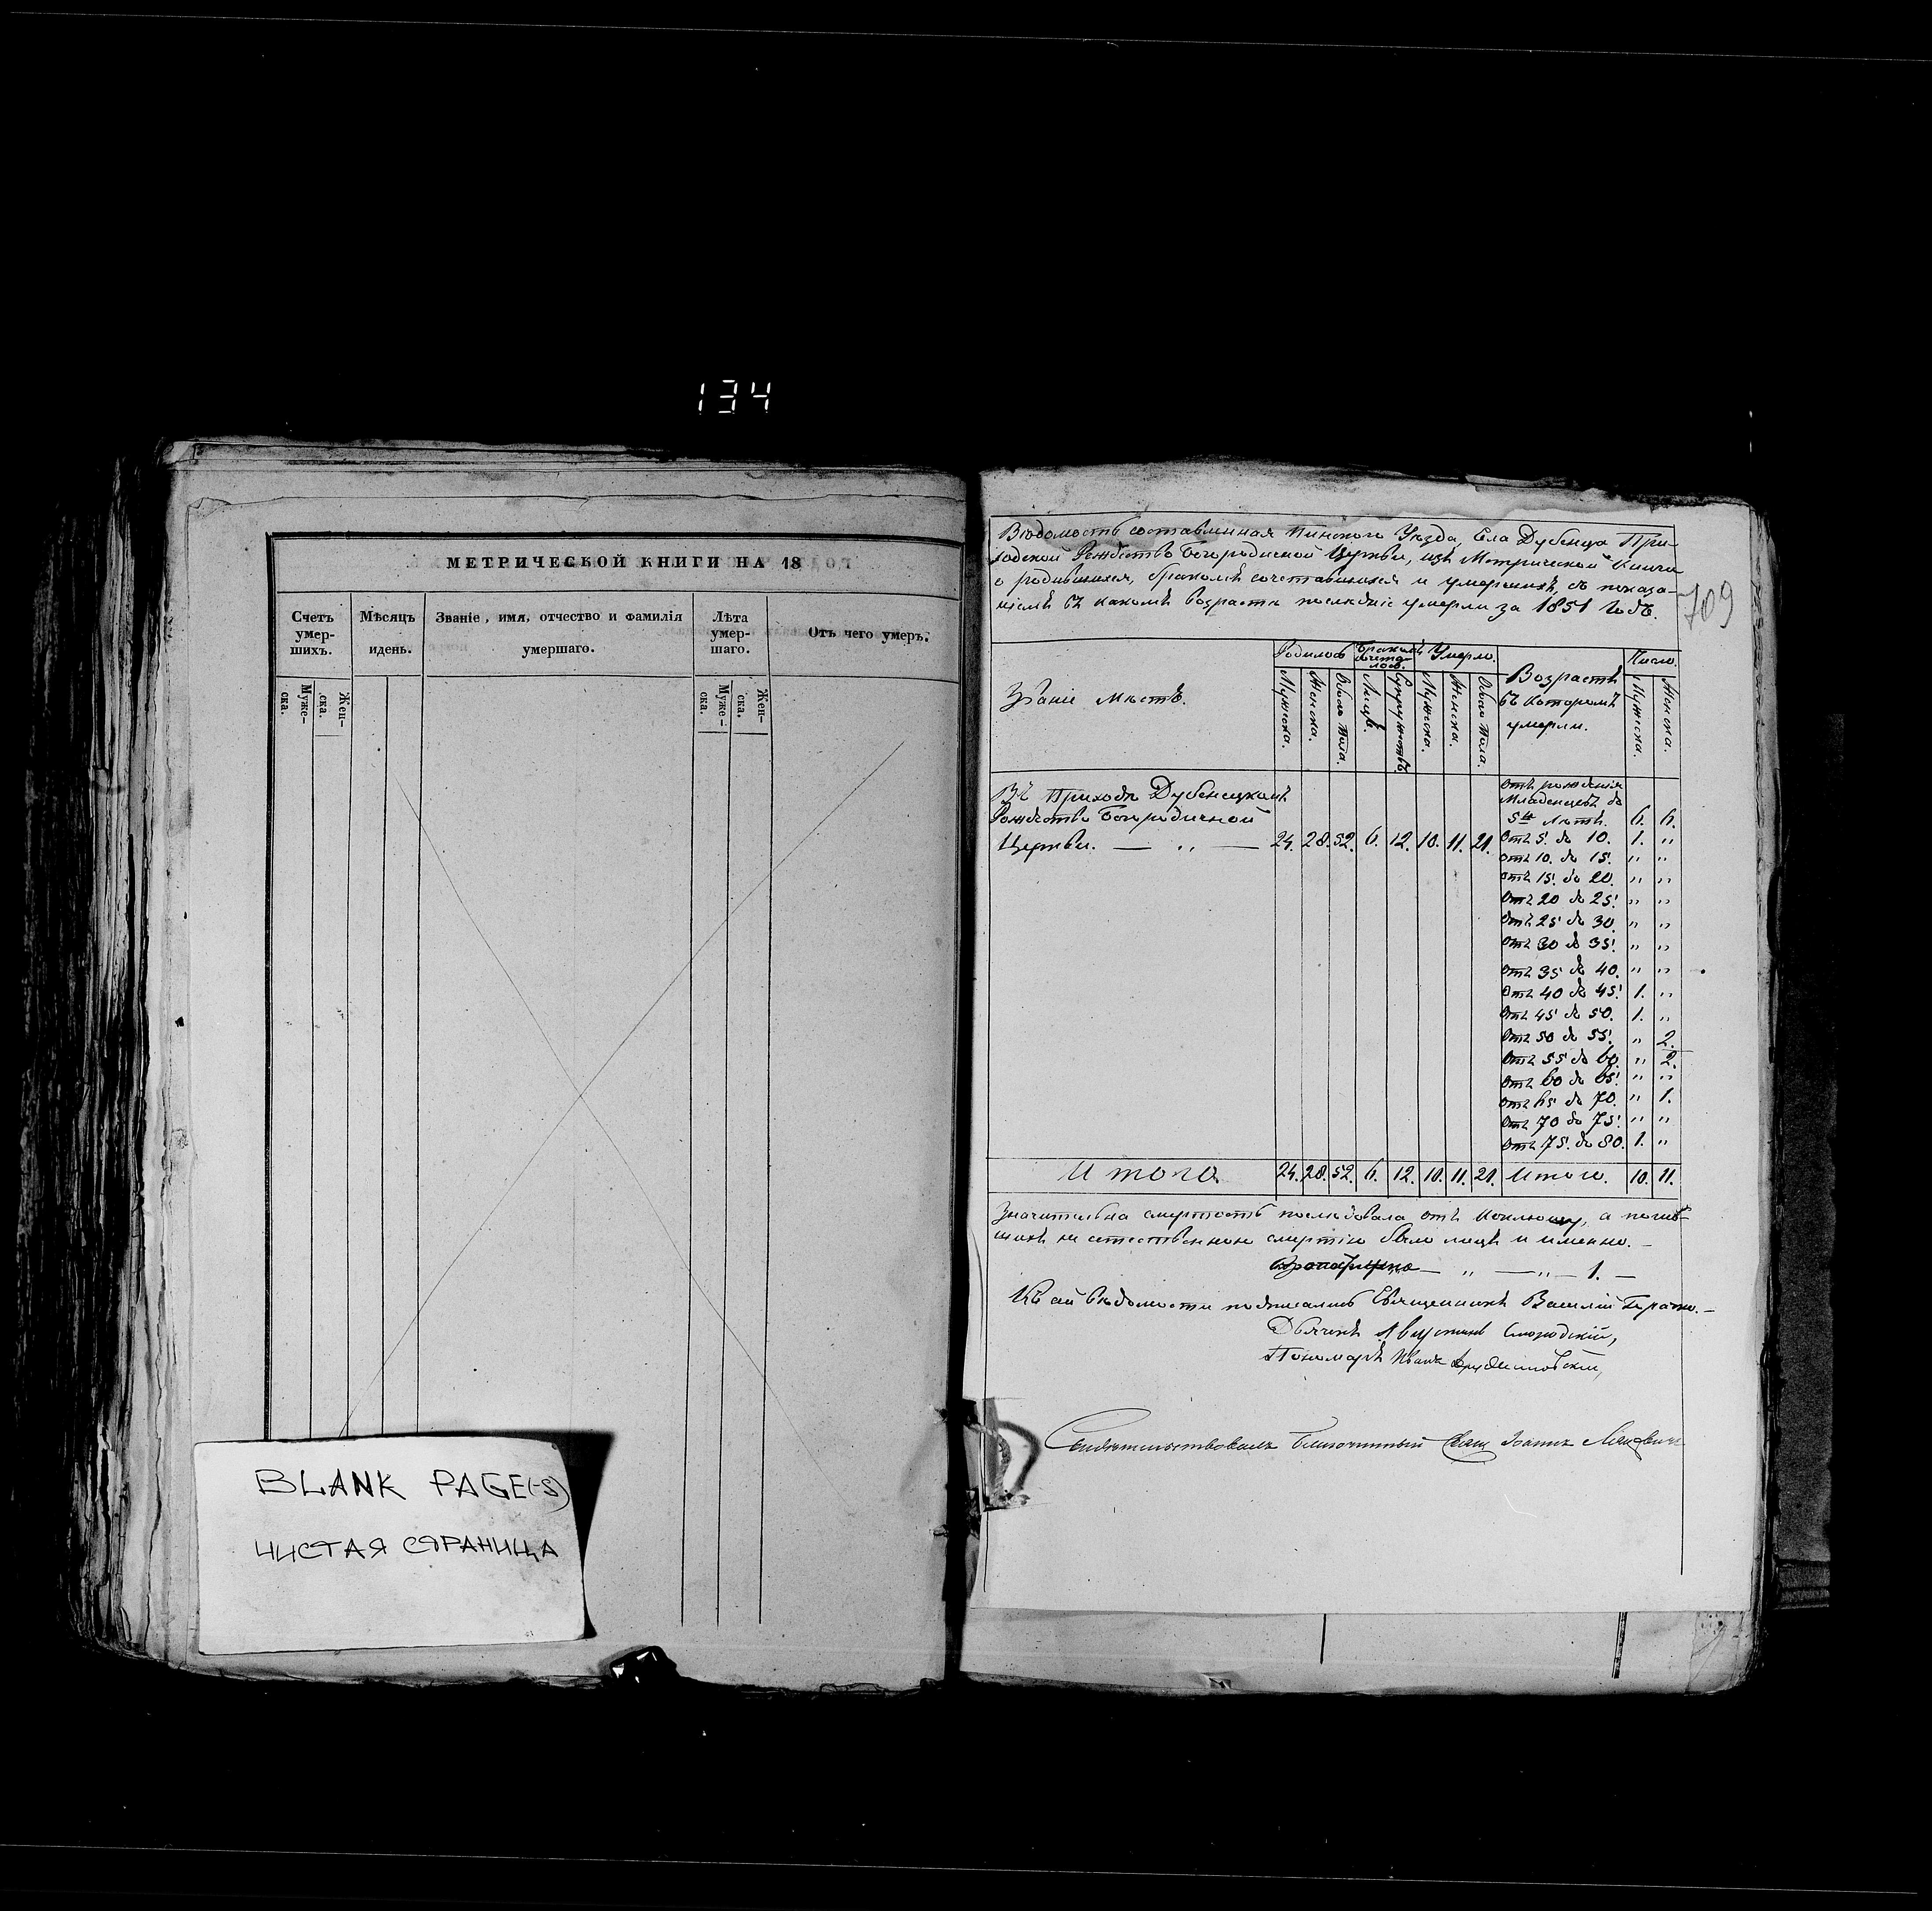 134
МЕТРИЧЕСКОЙ КНИГИ НА 18
Счетъ умер- шихъ.
Мѣсяцъ и день.
Званіе, имя, отчество и фамилія умершаго.
Лѣта умер- шаго.
Отъ чего умеръ.
Муже- ска.
Жен- ска.
Муже- ска.
Жен- ска.
BLANK PAGE(-S)
ЧИСТАЯ СТРАНИЦА
Вѣдомость составленная Пинскаго Уѣзда, Села Дубенца При-
ходской Рождество Богородиской Церкви, изъ Метрической Книги
о родившихся, бракомъ сочетавшихся и умершихъ, съ показа-
ніемъ въ какомъ возрастѣ послѣдніе умерли за 1851 Годъ.
709
Званіе мѣстъ.
Родилось
Бракомъ сочета- лось.
Умерло.
Возрастъ въ которомъ умерли.
Число.
Мужска. Женска. Обоего пола. Лицъ. Супружествъ. Мужска. Женска. Обоего пола. Мужска. Женска.
Въ Приходѣ Дубенецкомъ
Рождество Богородичной
Церкви. — „ — 24. 28. 52. 6. 12. 10. 11. 21.
отъ рожденія
Младенцевъ до
5ти Лѣтъ. 6. 6.
Отъ 5. до 10. 1. „
отъ 10. до 15. „ „
отъ 15. до 20. „ „
Отъ 20 до 25. „ „
Отъ 25 до 30. „ „
Отъ 30 до 35. „ „
Отъ 35 до 40. „ „
Отъ 40 до 45. 1. „
Отъ 45 до 50. 1. „
Отъ 50 до 55. „ 2.
Отъ 55 до 60. „ 2.
Отъ 60 до 65. „ „
Отъ 65 до 70. „ 1.
Отъ 70 до 75. „ „
Отъ 75. до 80. 1. „
Итого 24. 28. 52. 6. 12. 10. 11. 21. Итого. 10. 11.
Значительна смертность послѣдовала отъ коклюшу, а
не естественною смертію было лицъ и именно. —
— „ — „ — 1. —
вѣдомости подписались Священникъ Василій
Дьячекъ Августинъ Смородскій,
Пономарь Иванъ
Свидѣтельствовалъ Благочинный Свящ Іоаннъ